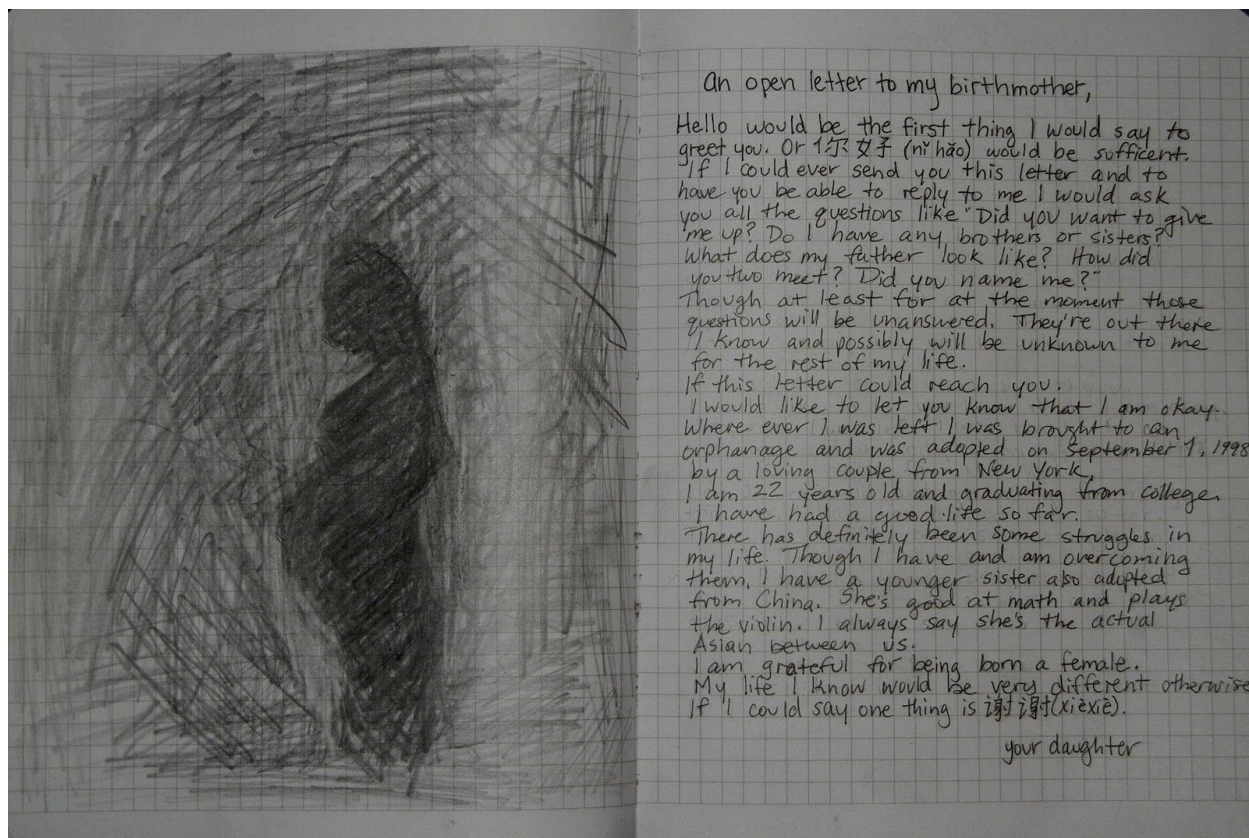 An open letter to my birthmother,
Hello would be the first thing I would say to
greet you. Or 你好 (nǐ hǎo) would be sufficent.
If I could ever send you this letter and to
have you be able to reply to me I would ask
you all the questions like "Did you want to give
me up? Do I have any brothers or sisters?
What does my father look like? How did
you two meet? Did you name me?"
Though at least for at the moment those
questions will be unanswered. They're out there
I know and possibly will be unknown to me
for the rest of my life.
If this letter could reach you.
I would like to let you know that I am okay.
Where ever I was left I was brought to an
orphanage and was adopted on September 1, 1998
by a loving couple from New York,
I am 22 years old and graduating from college,
I have had a good life so far.
There has definitely been some struggles in
my life. Though I have and am overcoming
them, I have a younger sister also adopted
from China. She's good at math and plays
the violin. I always say she's the actual
Asian between us.
I am grateful for being born a female.
My life I know would be very different otherwise
If I could say one thing is 谢谢(xièxiè).
your daughter